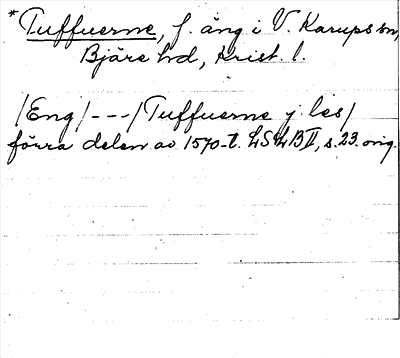 *Tuffuerne, f. äng i V. Karups sn,
Bjäre hd, Krist. l.
/Eng/---/Tuffuerne j les/
förra delen av 1570-t. LSLB II, s. 23. orig.